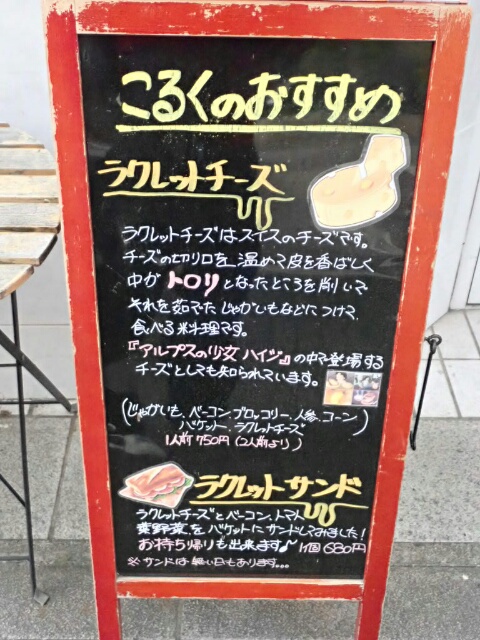 こるくのおすすめ
ラクレットチーズ
ラクレットチーズはスイスのチーズです。
チーズの切り口を温めて皮を香ばしく
中がトロリとなったところを削いで
それを茹でたじゃがいもなどにつけて、
食べる料理です。
『アルプスの少女 ハイジ』の中で登場する
チーズとしても知られています。
(じゃがいも、ベーコン、ブロッコリー、人参、コーン
バケット、ラクレットチーズ)
1人前 750円(2人前より)
ラクレットサンド
ラクレットチーズとベーコン、トマト
葉野菜、をバケットにサンドしてみました!
お持ち帰りも出来ます♪ 1個 680円
※サンドは無い日もあります...